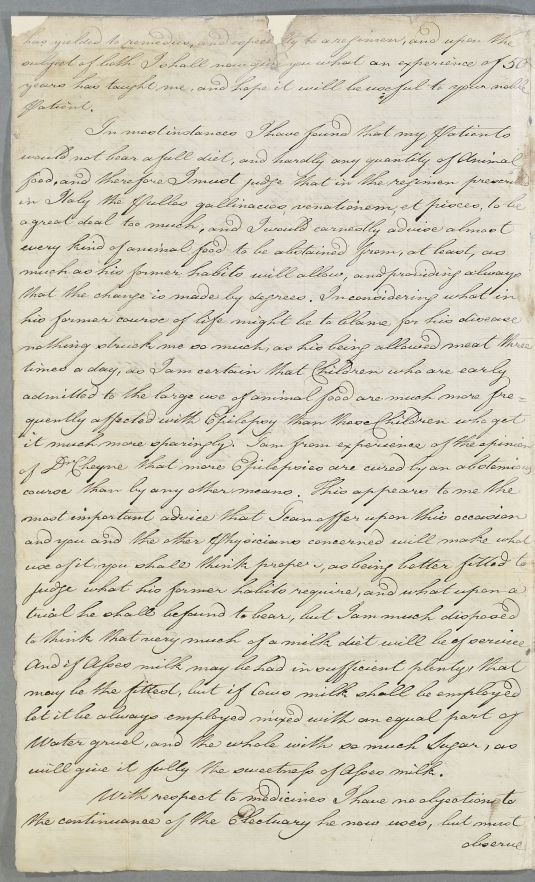 has yielded to remedies, and especially to a regimen, and upon the
subject of both I shall now give you what an experience of 50
years has taught me, and hope it will be useful to your noble
Patient.
In most instances I have found that my Patients
would not bear a full diet, and hardly any quantity of Animal
food, and therefore I must judge that in the regimen prescribed
in Italy the Pullos gallinaceos, venationem, et pisces, to be
a great deal too much, and I would earnestly advise almost
every kind of animal food to be abstained from, at least, as
much as his former habits will allow, and providing always
that the change is made by degrees. In considering what in
his former course of life might be to blame for his disease
nothing struck me so much, as his being allowed meat three
times a day, as I am certain that Children who are early
admitted to the large use of animal food are much more fre=
quently affected with Epilepsy than those Children who get
it much more sparingly. I am from experience of the opinion
of Dr. Cheyne that more Epilepsies are cured by an abstemious
course than by any other means. This appears to me the
most important advice that I can offer upon this occasion
and you and the other Physicians concerned will make what
use of it, you shall think proper, as being better fitted to
judge what his former habits require, and what upon a
trial he shall be found to bear, but I am much disposed
to think that very much of a milk diet will be of service
And if Asses milk may be had in sufficient plenty, that
may be the fittest, but if Cows milk shall be employed
let it be always employed mixed with an equal part of
Water gruel, and the whole with so much Sugar, as
will give it fully the sweetness of Asses milk.
With respect to medicines I have no objection to
the continuance of the Electuary he now uses, but must
observe